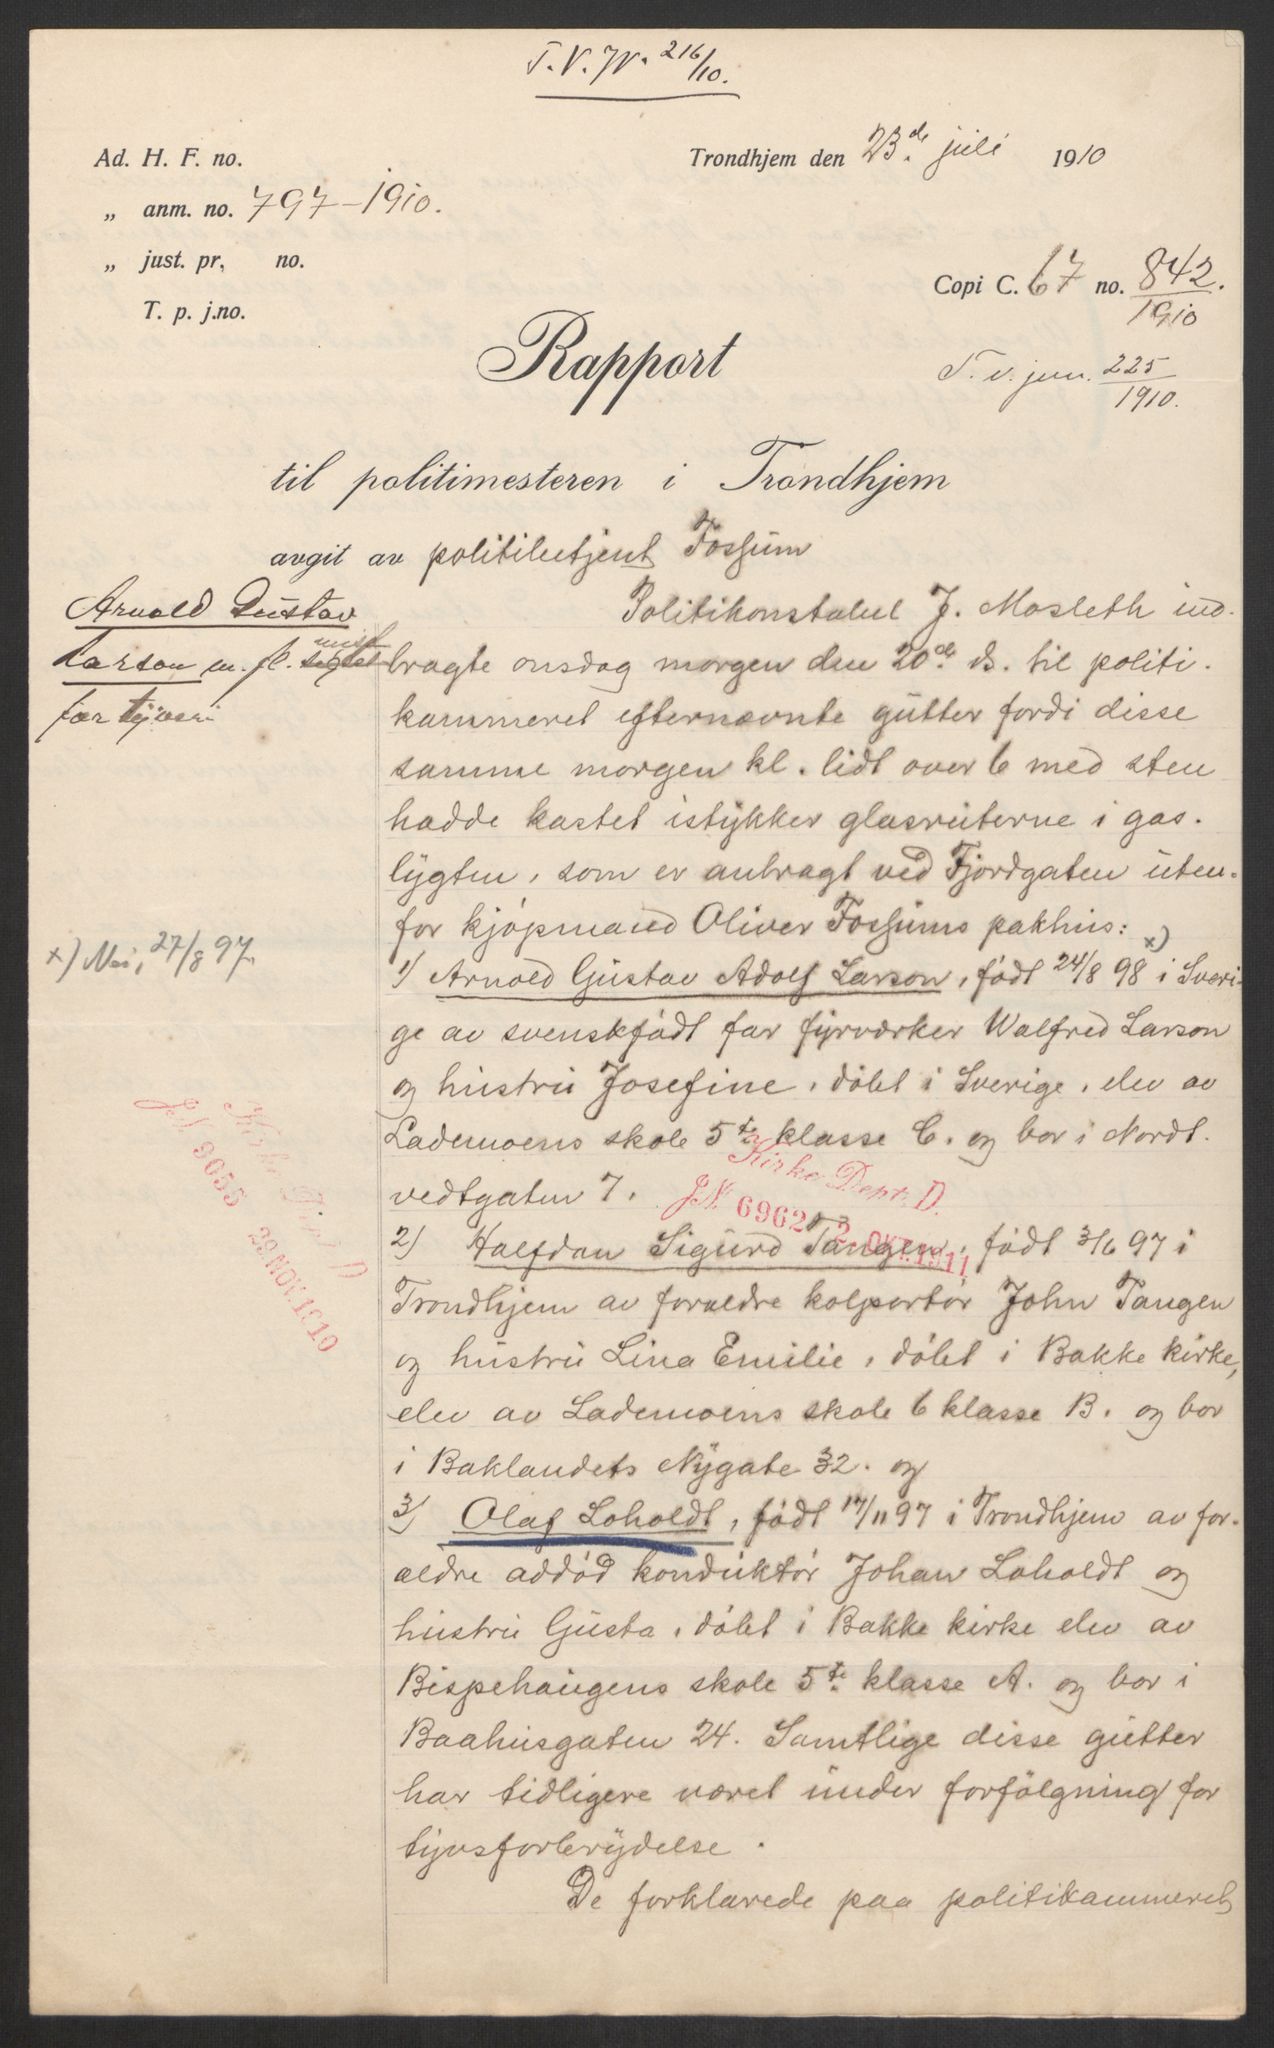 T. V. N. 216/10.
Ad. H. F. no.
Trondhjem den 23.de juli 1910
„ anm. no. 797-1910.
„ just. pr, no.
Copi C. 67 no. 842.
1910
T. p. j.no.
Rapport
T. v. jun. 225
1910.
til politimesteren i Trondhjem
avgit av politibetjent Fossum
Arnold Gustav
Larson m. fl.
for tyveri
Politikonstabel J. Mosleth ind-
bragte onsdag morgen den 20de ds. til politi-
kammeret efternævnte gutter fordi disse
samme morgen kl. lidt over 6 med sten
hadde kastet istykker glasruterne i gas-
lygten, som er anbragt ved Fjordgaten uten-
for kjøpmand Oliver Fossums pakhus:
x) Nei, 27/8 97.
1) Arnold Gustav Adolf Larson, født 24/8 98 x) i Sveri-
ge av svenskfødt far fyrværker Walfred Larson
og hustru Josefine, døbt i Sverige, elev av
Lademoens skole 5te klasse C. og bor i Nordt-
vedtgaten 7.
Kirke Dept. D.
JN. 6962 * 2. OKT. 1911
Kirke Dept. D
JN. 9055 29. NOV. 1910
2) Halfdan Sigurd Tangen, født 3/6 97 i
Trondhjem av forældre kolportør John Tangen
og hustru Lina Emilie, døbt i Bakke kirke,
elev av Lademoens skole 6 klasse B. og bor
i Baklandets Nygate 32. og
3) Olaf Loholdt, født 17/11 97 i Trondhjem av for-
ældre addød konduktør Johan Loholdt og
hustru Gusta, døbt i Bakke kirke elev av
Bispehaugens skole 5te klasse A. og bor i
Baahusgaten 24. Samtlige disse gutter
har tidligere været under forfølgning for
tyvsforbrydelse.
De forklarede paa politikammeret